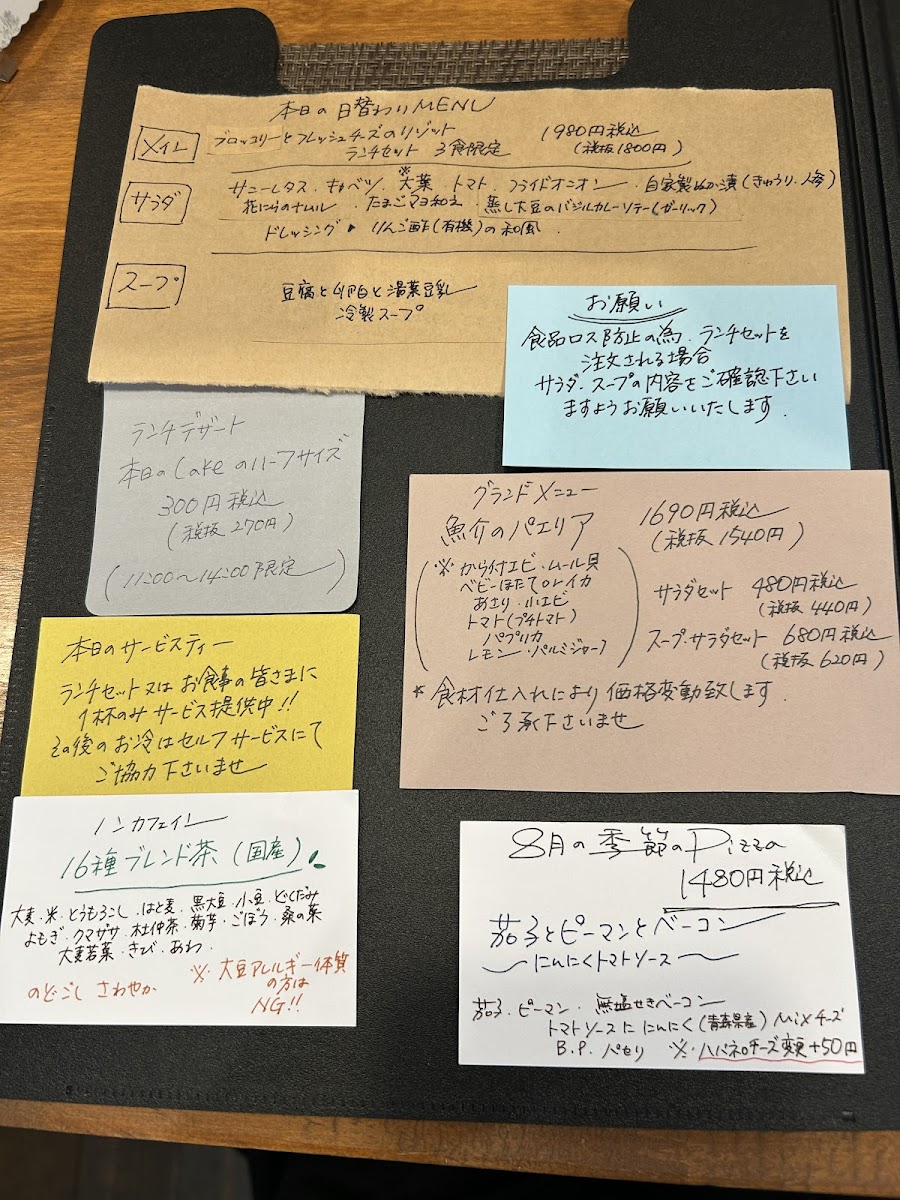 本日の日替わりMENU
メイン
ブロッコリーとフレッシュチーズのリゾット 1980円税込
ランチセット 3食限定 (税抜1800円)
サラダ
サニーレタス・キャベツ・※大葉・トマト・フライドオニオン・自家製ぬか漬(きゅうり・人参)
花にらのナムル・たまごマヨ和え・蒸し大豆のバジルカレーソテー(ガーリック)
ドレッシング りんご酢(有機)の和風
スープ
豆腐と卵白と湯葉豆乳
冷製スープ
お願い
食品ロス防止の為、ランチセットを
注文される場合
サラダ・スープの内容をご確認下さい
ますようお願いいたします.
ランチデザート
本日のCakeのハーフサイズ
300円税込
(税抜270円)
(11:00〜14:00限定)
グランドメニュー
魚介のパエリア 1690円税込
(税抜1540円)
(※から付エビ・ムール貝
ベビーほたて・イカ
あさり・小エビ
トマト(プチトマト)
パプリカ
レモン・パルミジャーノ)
サラダセット 480円税込
(税抜440円)
スープ・サラダセット 680円税込
(税抜620円)
※食材仕入れにより価格変動致します.
ご了承下さいませ
本日のサービスティー
ランチセット又はお食事の皆さまに
1杯のみサービス提供中!!
その後のお冷はセルフサービスにて
ご協力下さいませ
ノンカフェイン
16種ブレンド茶(国産)
大麦・米・とうもろこし・はと麦・黒大豆・小豆・どくだみ
よもぎ・クマザサ・杜仲茶・菊芋・ごぼう・桑の葉
大麦若葉・きび・あわ.
のどごし さわやか
※大豆アレルギー体質
の方は
NG!!
8月の季節のPizza
1480円税込
茄子とピーマンとベーコン
〜にんにくトマトソース〜
茄子・ピーマン・無塩せきベーコン
トマトソースににんにく(青森県産)Mixチーズ
B.P. パセリ ※・ハバネロチーズ変更+50円